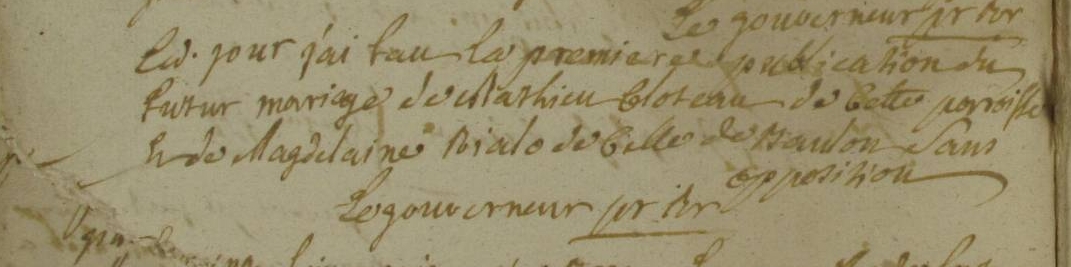 Le gouverneur pr Rr
Led. jour j'ai fait la premiere publication du
futur mariage de Mathieu Cloteau de Cette parroisse
& de Magdelaine Rialo de Celle de Baulon Sans
opposition
Le gouverneur pr Rr